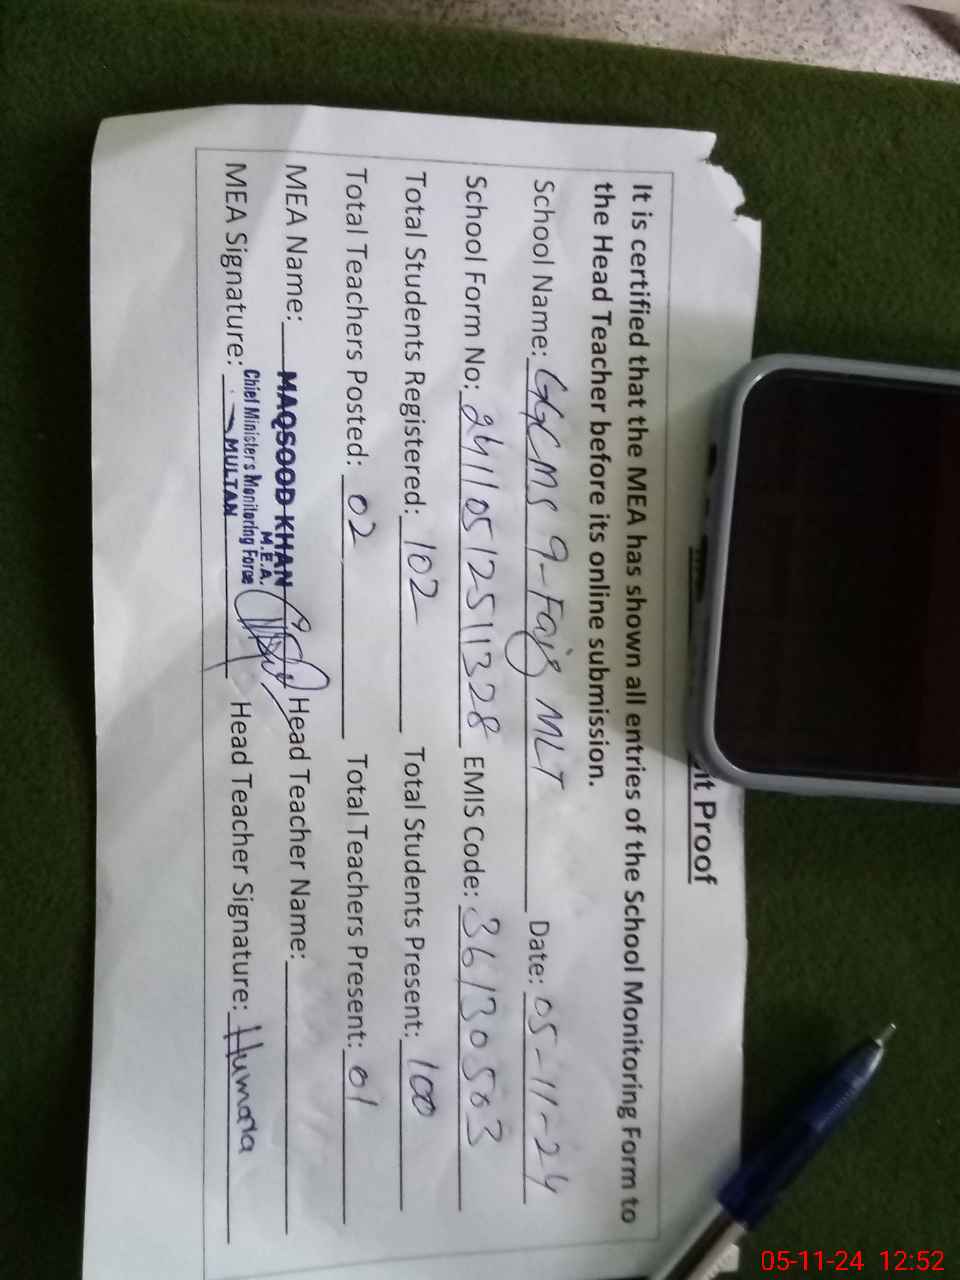 it Proof
It is certified that the MEA has shown all entries of the School Monitoring Form to
the Head Teacher before its online submission.
School Name: GGCMS 9-Faiz MLT Date: 05-11-24
School Form No: 24110512511328 EMIS Code: 36130503
Total Students Registered: 102 Total Students Present: 100
Total Teachers Posted: 02 Total Teachers Present: 01
MEA Name: MAQSOOD KHAN Head Teacher Name:
M.E.A.
Chief Minister's Monitoring Force
MEA Signature: MULTAN Head Teacher Signature: Humara
05-11-24 12:52